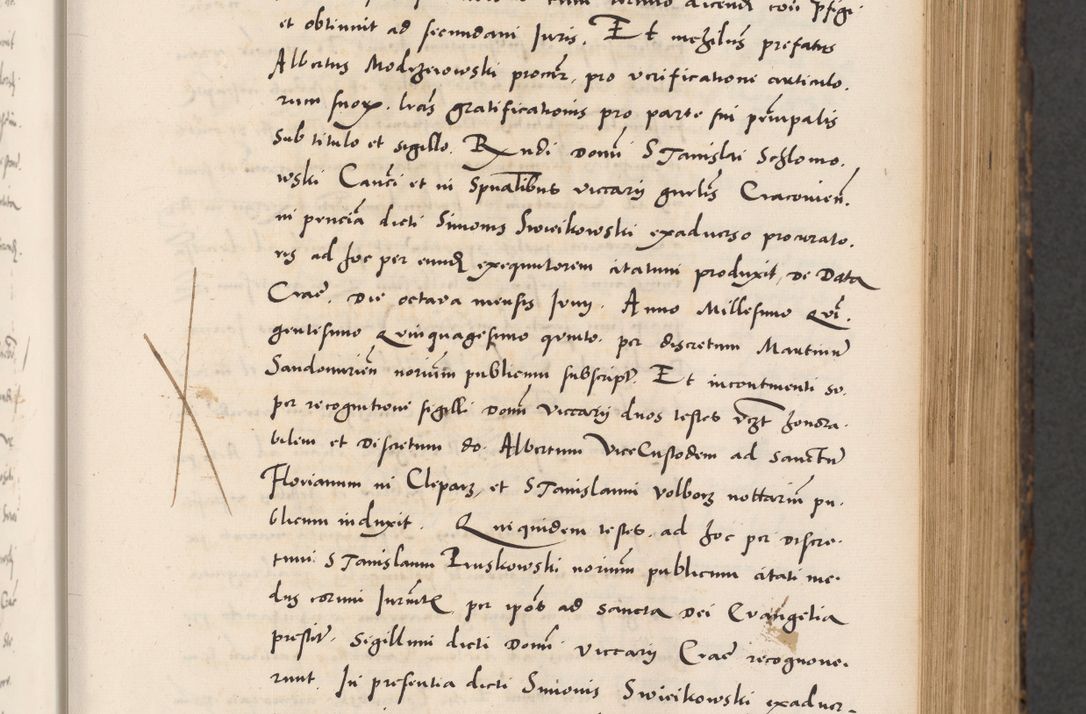 et obtinuit ad secundam Juris. Et nichilus prefatus
Albertus Modrzewowski procur, pro verificatione articulo.
rum suor, lras gratificationis pro parte sui prinpalis
sub titulo et sigillo Rndi Domi Stanislai Schlomo.
wski Canci et in spualibus viccarii gnalis Cracovien.
in pncia dicti Simonis Swieikowski exadverso procurato.
ris ad hoc per eund exequutorem citatum produxit, de Data
Crae. Die octava mensis Junii. Anno Millesimo Qui.
gentesimo Quinquagesimo quinto. per discretum Martinu
Sandomirien norium publicum subscript. Et incontinenti so.
per recognitione sigilli Domi viccarii duos testes vczt honora.
bilem et Discretum do. Albertum ViceCustodem ad Sanctu
Florianum in Cleparz, et Stanislaum Volborz nottarium pu.
blicum induxit. Qui quidem testes ad hoc per discre.
tum Stanislaum Pruskowski norium publicum citati me.
dio eorum Jurmto, per ipos ad Sancta Dei Evangelia
prestit. Sigillum dicti Domi viccarii Crae recognove.
runt. In presentia dicti Simonis Swieikowski exadver-